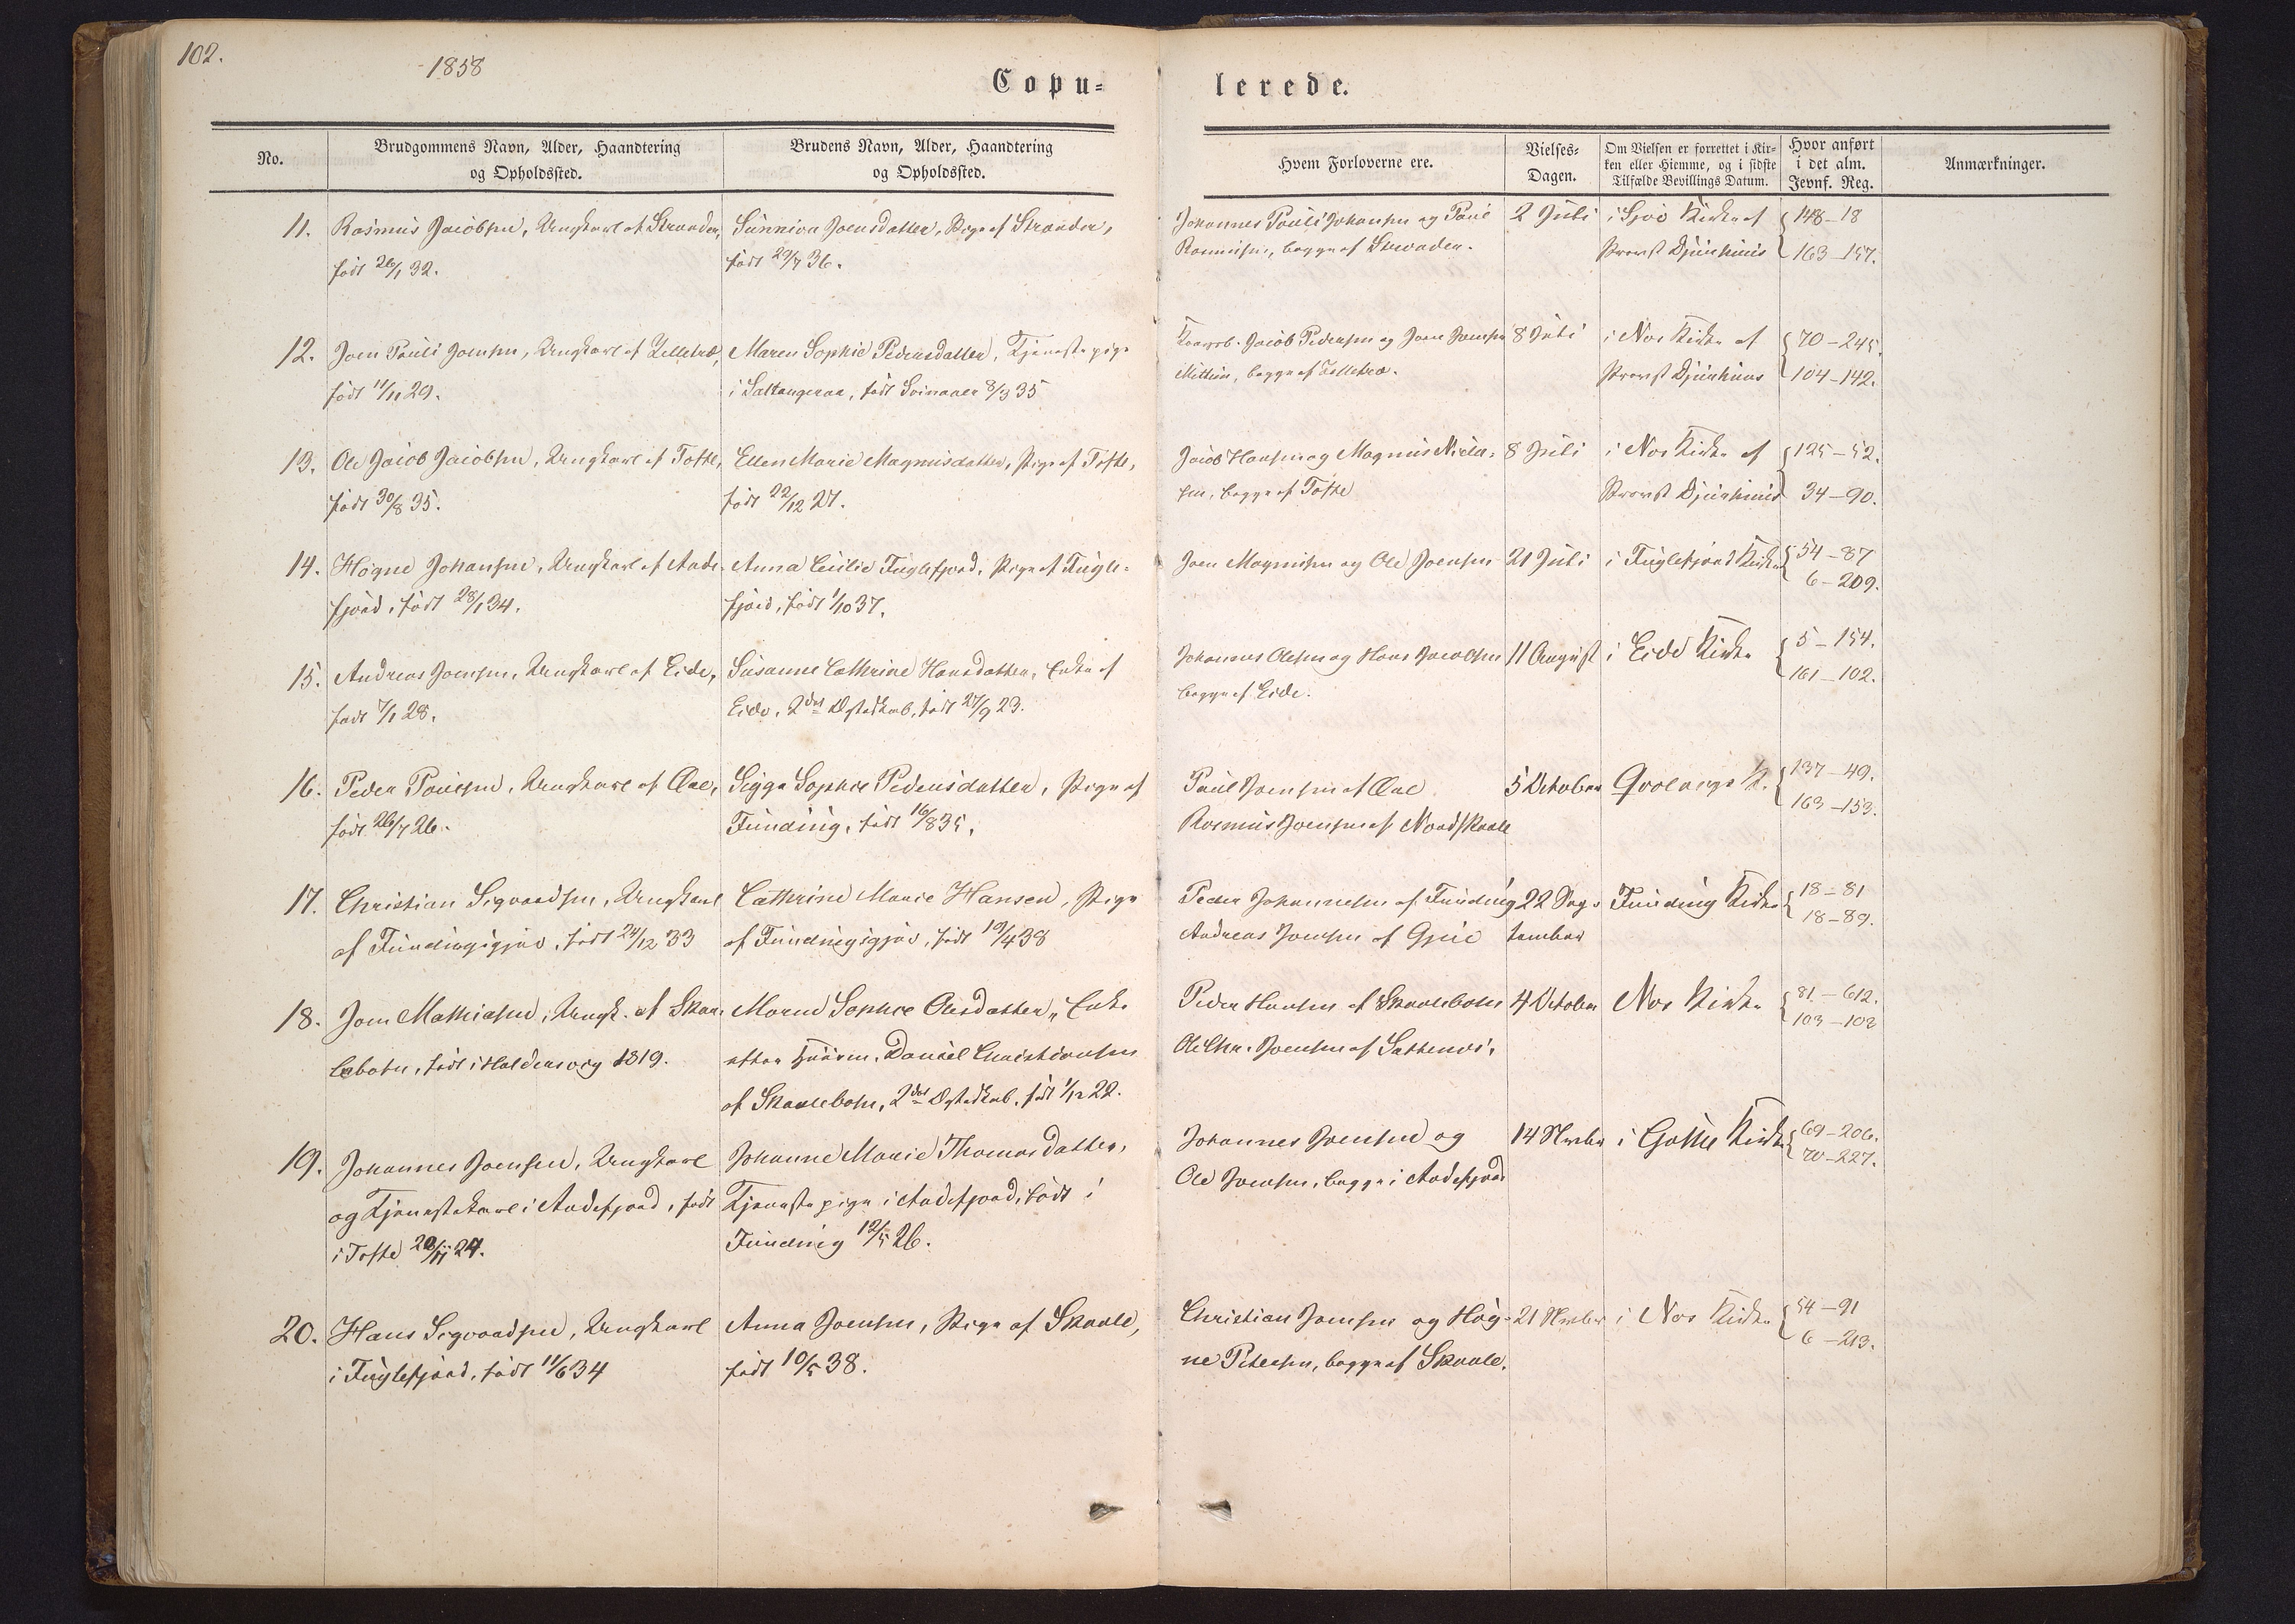 102.
1858
Copu=
lerede.
No.
Brudgommens Navn, Alder, Haandtering
og Opholdssted.
Brudens Navn, Alder, Haandtering
og Opholdssted.
Hvem Forloverne ere.
Vielses=
Dagen.
Om Vielsen er forrettet i Kir=
ken eller Hiemme, og i sidste
Tilfælde Bevillings Datum.
Hvor anført
i det alm.
Jevnf. Reg.
Anmærkninger.
11.
Rasmus Jacobsen, Ungkarl af Strander,
født 26/1 32.
Sunniva Joensdatter, Pige af Strander,
født 29/7 36.
Johannes Pauli Johansen og Paul
Rasmusen, begge af Strander.
2 Juli
i Sjov Kirke af
Provst Djurhuus
148–18
163–157.
12.
Joen Pauli Joensen, Ungkarl af Zelletræ,
født 11/11 29.
Maren Sophie Pedersdatter, Tjenestepige
i Saltangeraa, født Svinaaer 8/3 35
Jacob Pedersen og Joen Joensen
begge af Zelletræ.
8 Juli
i Nes Kirke af
Provst Djurhuus
70–245.
104–142.
13.
Ole Jacob Jacobsen, Ungkarl af Tofte,
født 30/8 35.
Ellen Marie Magnusdatter, Pige af Tofte,
født 22/12 27.
Jacob Hansen og Magnus Nicla=
sen, begge af Tofte
8 Juli
i Nes Kirke af
Provst Djurhuus
125–52.
34–90.
14.
Høgne Johansen, Ungkarl af Ande=
fjord, født 28/1 34.
Anna Cecilie Fuglefjord, Pige af Fugle=
fjord, født 1/10 37.
Joen Magnusen og Ole Joensen
21 Juli
i Fuglefjord Kirke
54–87
6–209.
15.
Andreas Joensen, Ungkarl af Eide,
født 7/1 28.
Susanne Cathrine Hansdatter, Enke af
Eide, 2det Ægteskab, født 27/9 23.
Johannes Olesen og Hans Jacobsen
begge af Eide.
11 August
i Eide Kirke
5–154.
161–102.
16.
Peder Poulsen, Ungkarl af Øre,
født 26/7 26.
Sigga Sophie Pedersdatter, Pige af
Funding, født 16/8 35.
Paul Joensen af Øre
Rasmus Joensen af Nordskaale
5 October
Qvolvigs K.
137–49.
163–153.
17.
Christian Sigvardsen, Ungkarl
af Fundingsgjov, født 24/12 33
Cathrine Marie Hansen, Pige
af Fundingsgjov, født 19/4 38
Peder Johannesen af Funding
Andreas Joensen af Gjov
22 Sep=
tember
Funding Kirke
18–81
18–89.
18.
Joen Mathiasen, Ungk. af Skaa=
lebotn, født i Haldersvig 1819.
Maren Sophie Olesdatter, Enke
efter Huusm. Daniel Christiansen
af Skaalebotn, 2det Ægteskab, født 1/12 22.
Peder Hansen af Skaalebotn
Ole Chr. Joensen af Sattenæs.
4 October
Nes Kirke
81–612.
103–102
19.
Johannes Joensen, Ungkarl
og Tjenestekarl i Andefjord, født
i Tofte 20/11 24.
Johanne Marie Thomasdatter,
Tjenestepige i Andefjord, født i
Funding 12/5 26.
Johannes Joensen og
Ole Joensen, begge i Andefjord
14 Novbr
i Gøthe Kirke
69–206.
70–227.
20.
Hans Sigvardsen, Ungkarl
i Fuglefjord, født 11/6 34
Anna Joensen, Pige af Skaale,
født 10/5 38.
Christian Joensen og Høg=
ne Petersen, begge af Skaale.
21 Novbr
i Nes Kirke
54–91
6–213.